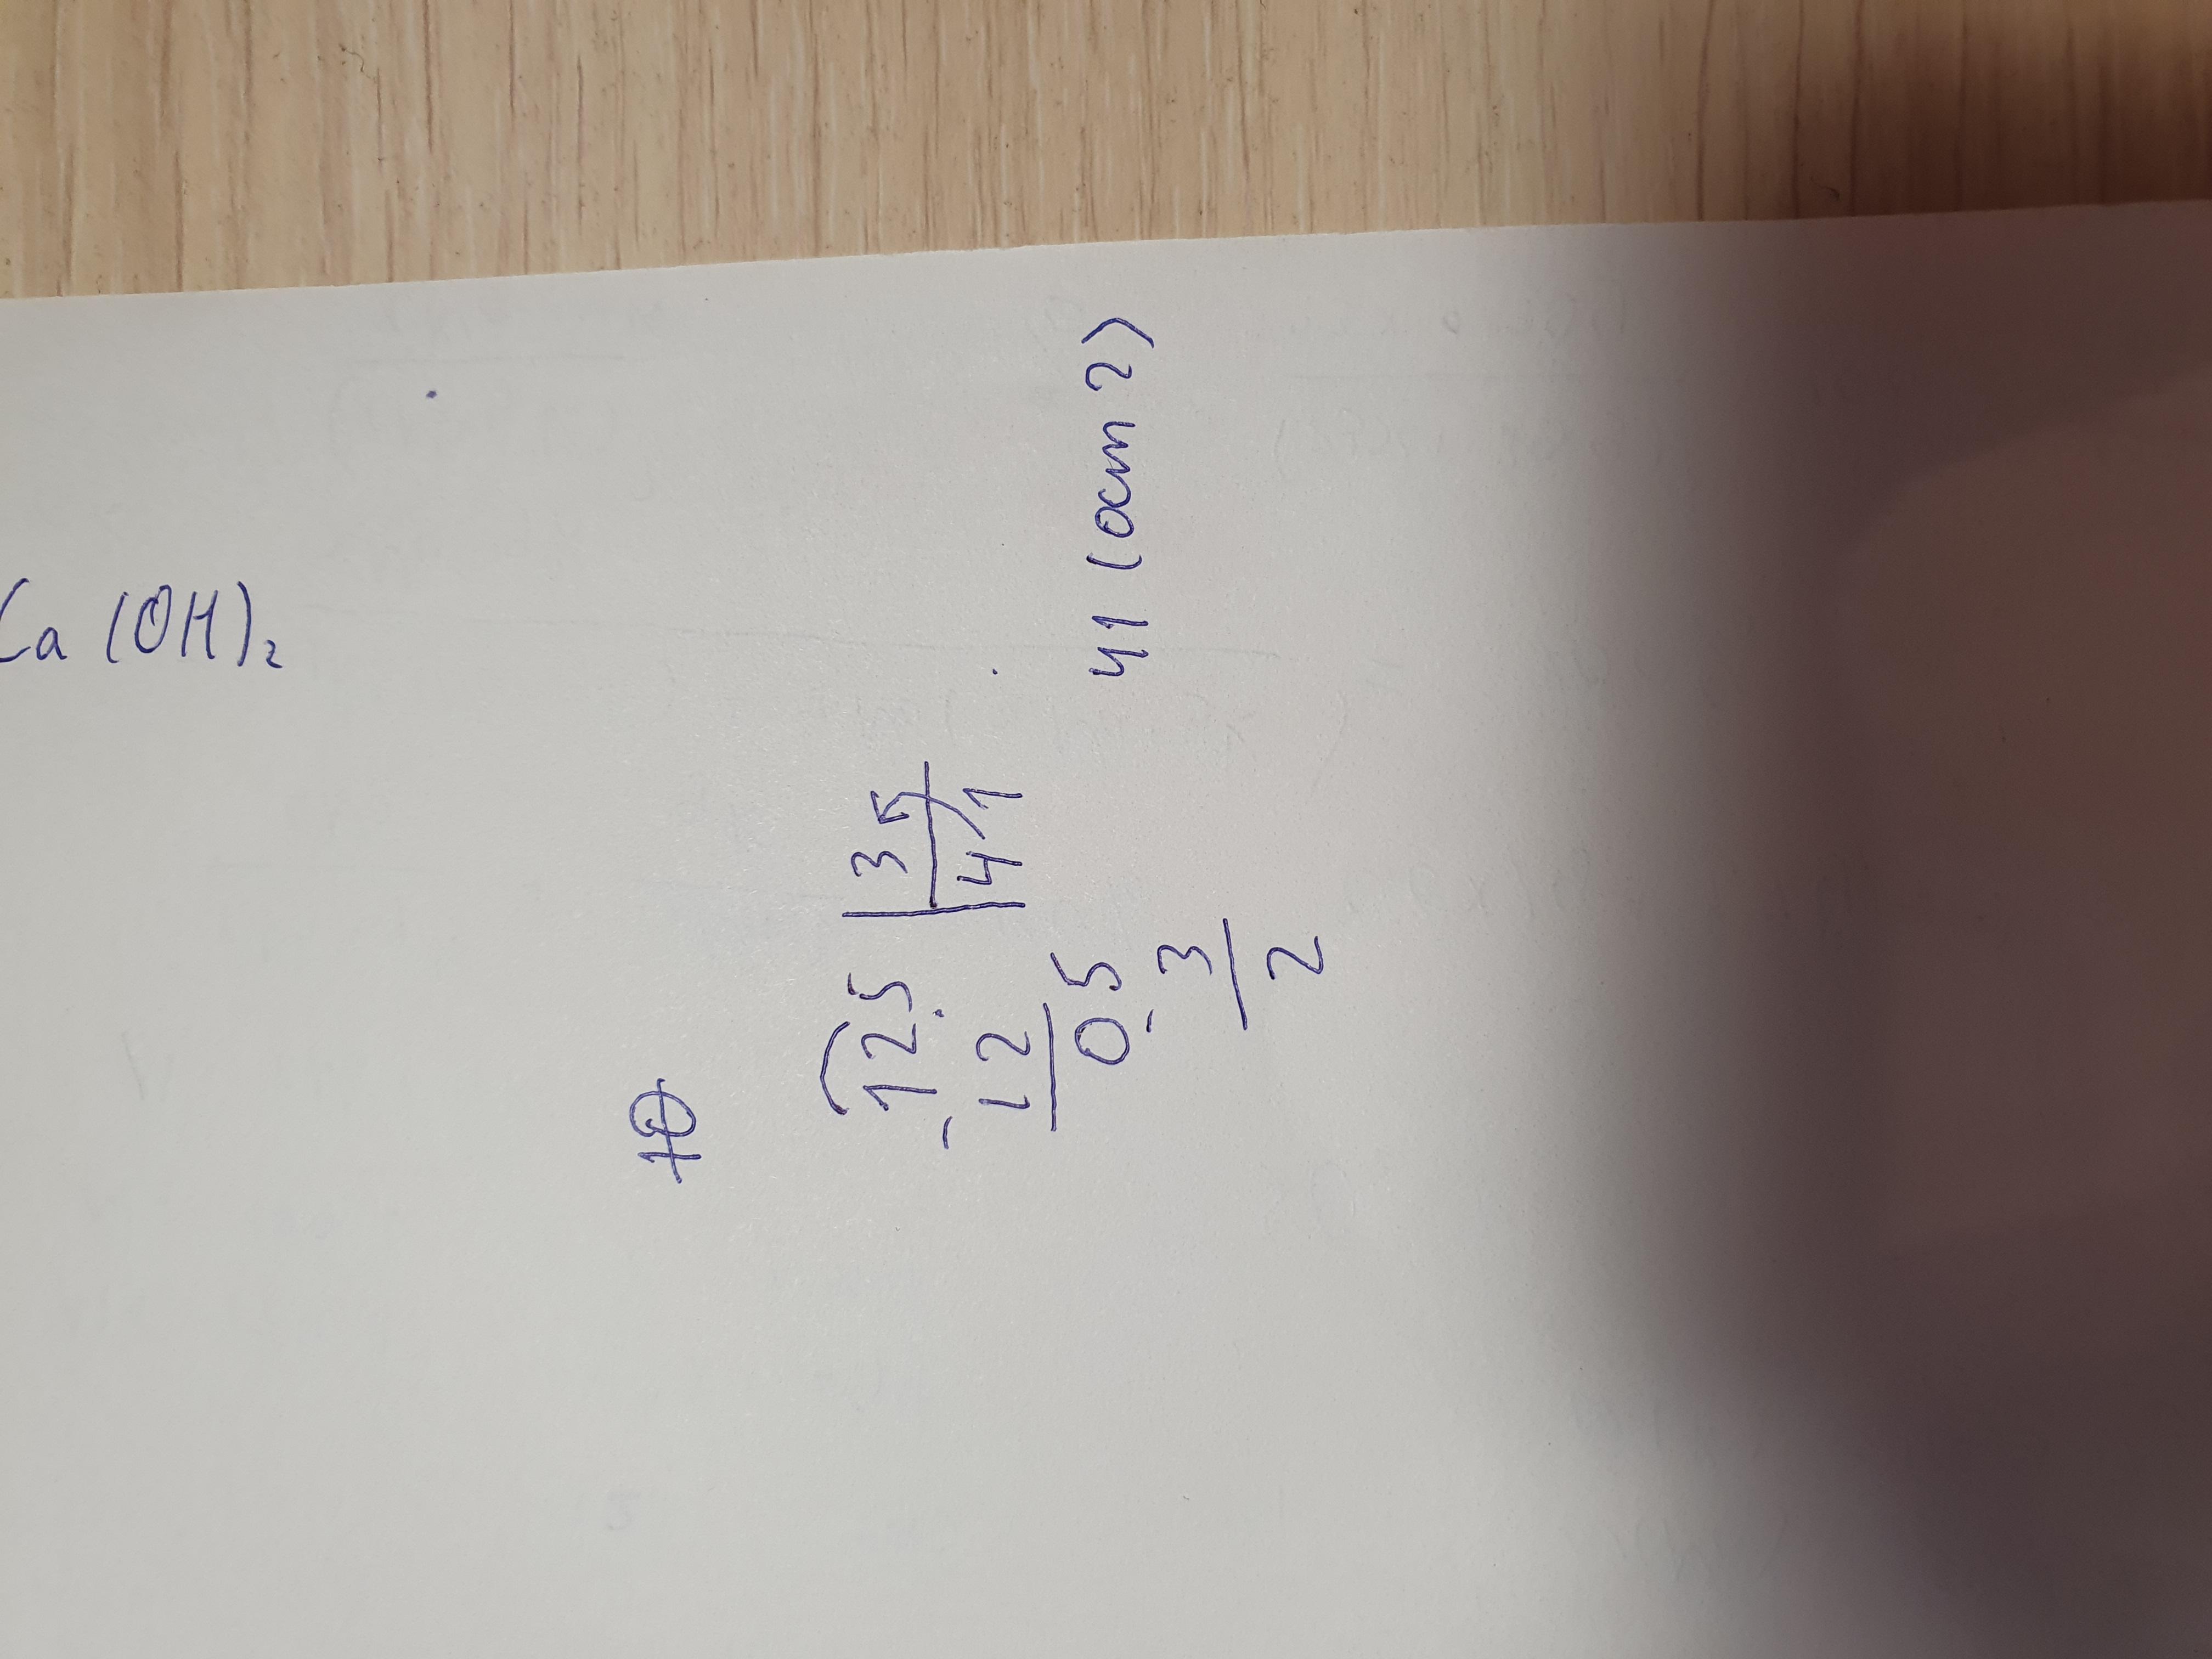 Ca(OH)₂
125 | 3
12 | 41
05
3
2
41 (ост 2)